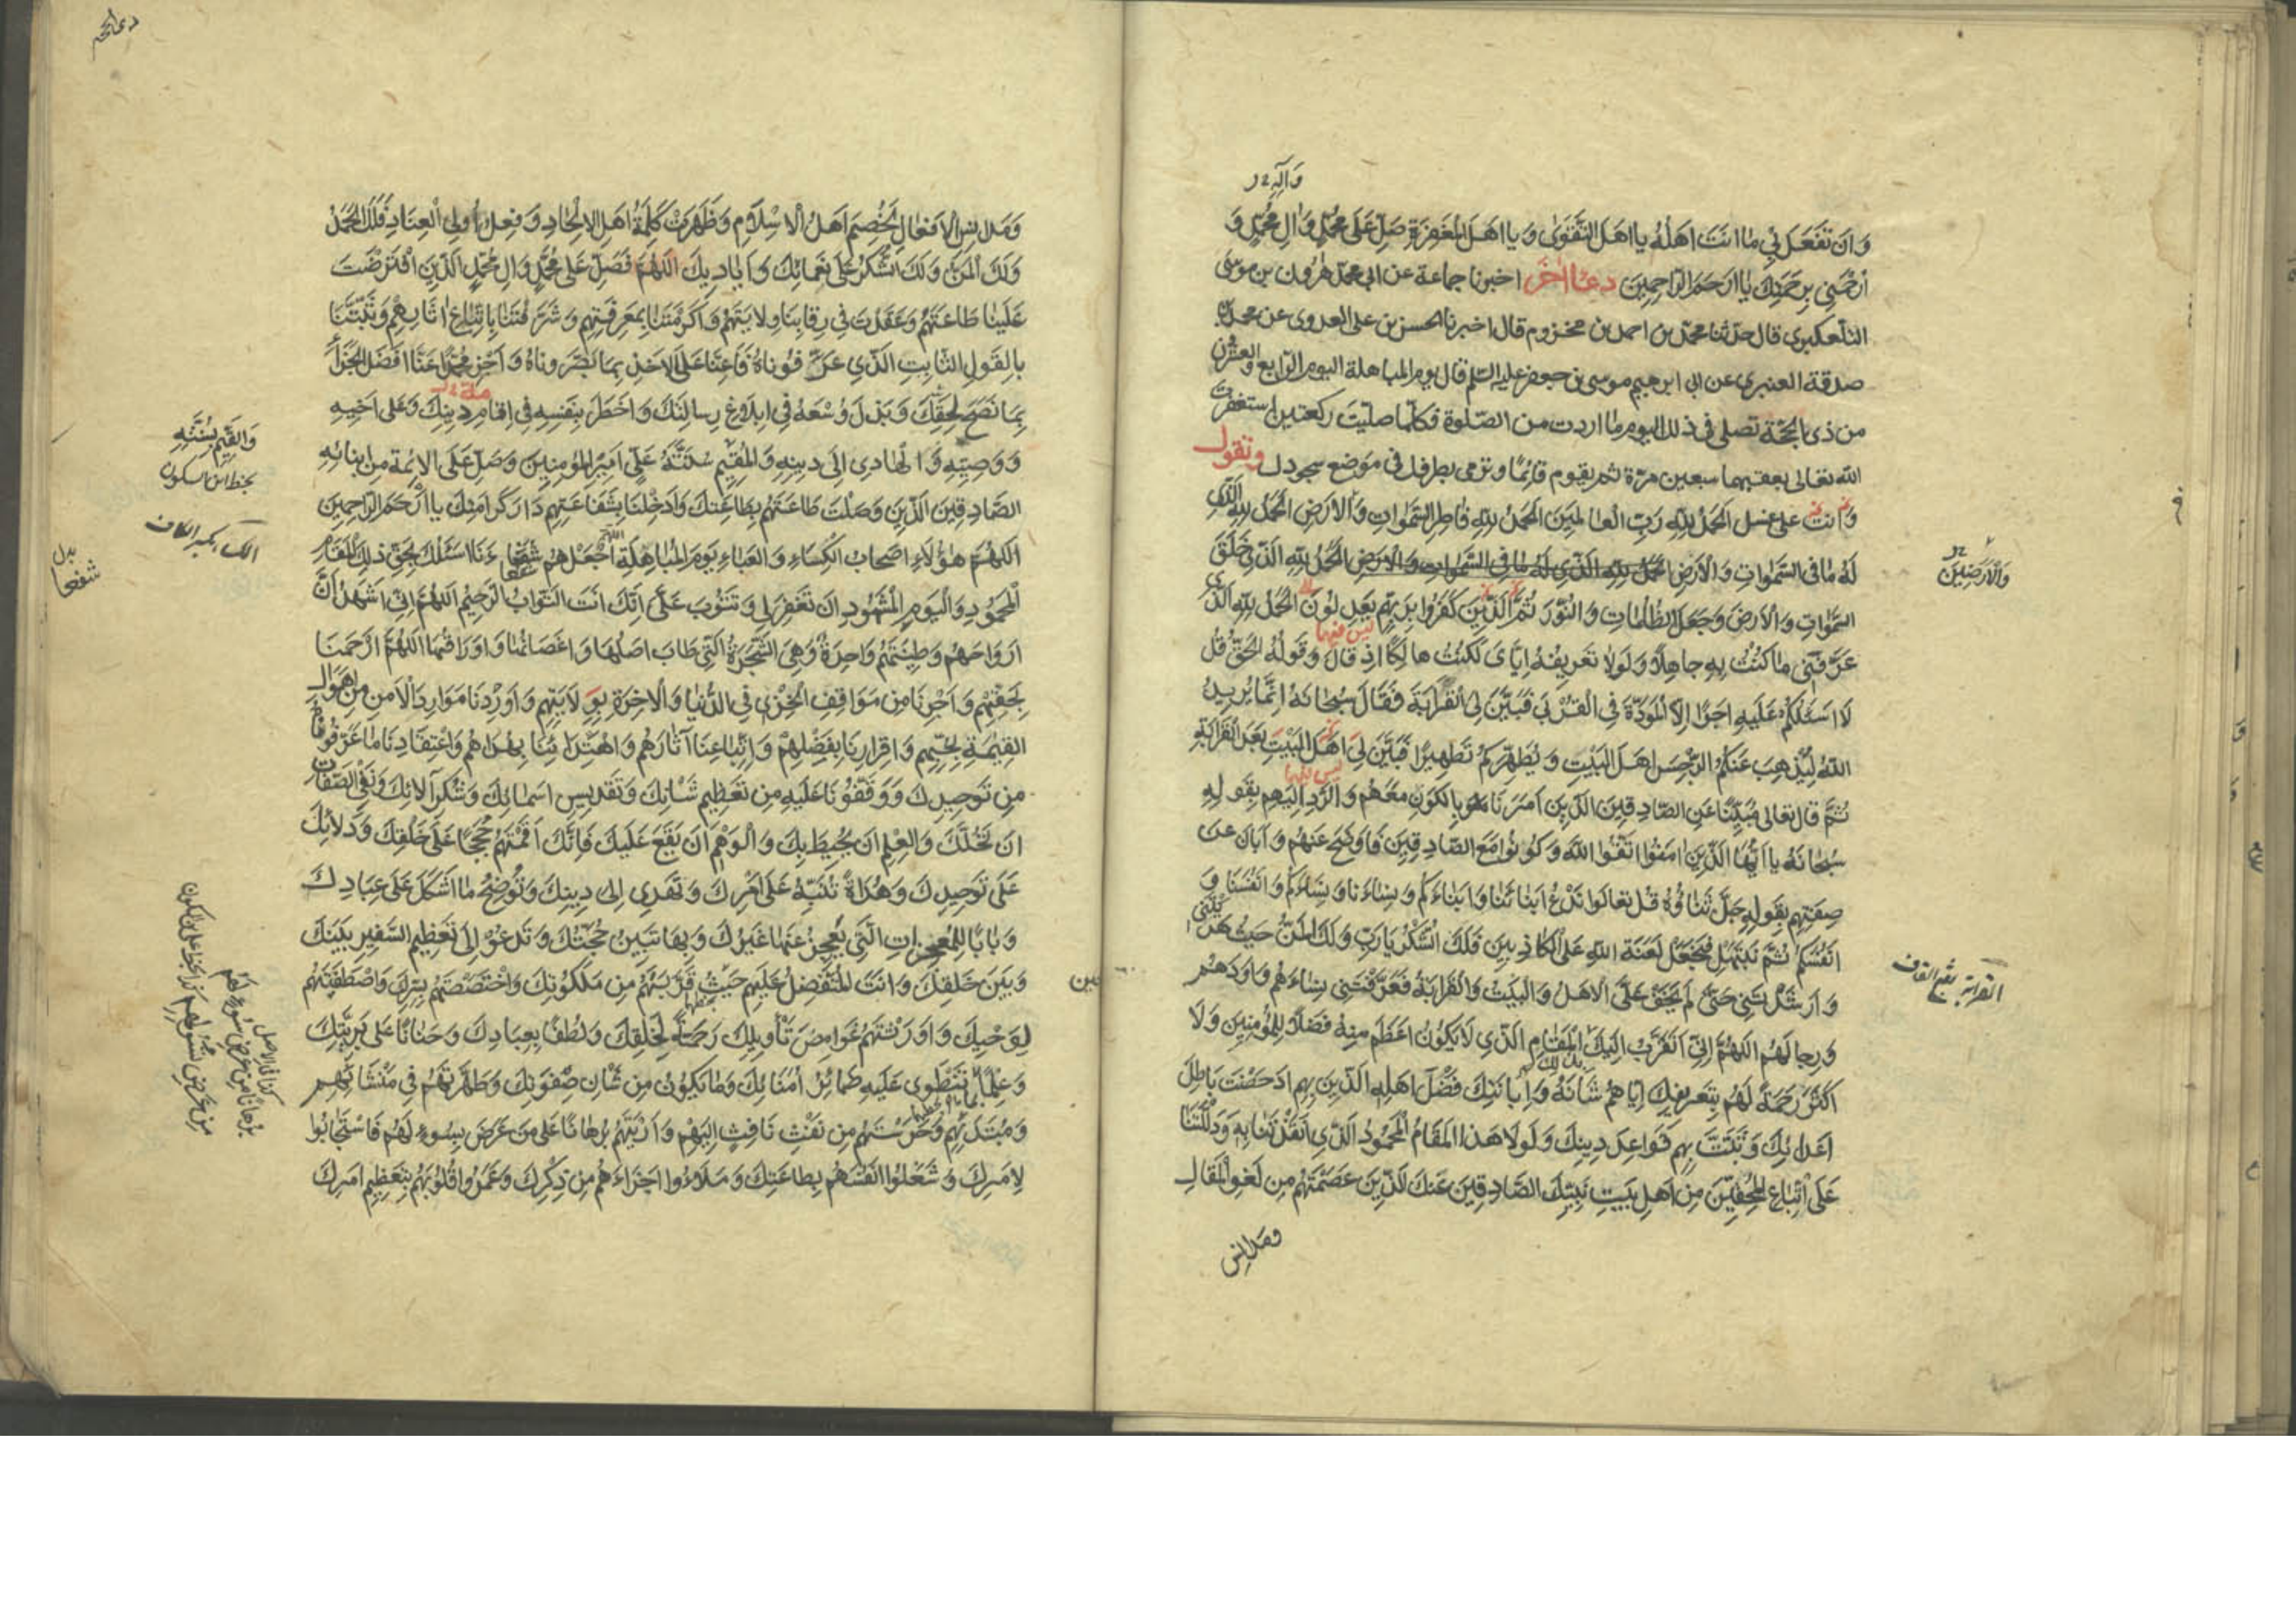 وَآلِهِ
وَاَن تَفْعَلَ بِي مَا اَنتَ اَهلُهُ يا اَهلَ التَّقوٰى وَيا اَهلَ المَغفِرَةِ صَلِّ عَلى مُحَمَّدٍ وَالِ مُحَمَّدٍ وَ
ارْحَمْنِي بِرَحمَتِكَ يا اَرحَمَ الرّاحِمِينَ دعاء اخر اخبرنا جماعة عن ابي محمد هرون بن موسى
التلعكبري قال حدثنا محمد بن احمد بن مخزوم قال اخبرنا الحسن بن على العدوى عن محمد بن
صدقة العنبري عن ابي ابرهيم موسى بن جعفر عليه السّلم قال يوم المباهلة اليوم الرابع والعشرون
من ذى الحجّة تصلى فى ذلك اليوم ما اردت من الصّلوة فكلّما صلّيتَ ركعتين استغفرت
الله تعالى بعقبهما سبعين مرّة ثم يقوم قائِمًا وترمى بطرفك فى موضع سجودك وتقول
وانت على غسل الحَمدُ لِلّهِ رَبِّ العالَمِينَ الحَمدُ لِلّهِ فاطِرِ السَّمواتِ وَالاَرضِ الحَمدُ لِلّهِ الَّذِي
لَهُ ما فِى السَّمٰواتِ وَالاَرضِ الحَمدُ لِلّهِ الَّذِي لَهُ ما فِى السَّمٰواتِ وَالاَرضِ الحَمدُ لِلّهِ الَّذِي خَلَقَ
وَالاَرَضِينَ
السَّمٰواتِ وَالاَرضَ وَجَعَلَ الظُّلُماتِ وَالنُّورَ ثُمَّ الَّذِينَ كَفَرُوا بِرَبِّهِم يَعدِلُونَ الحَمدُ لِلّهِ الَّذِي
ليس فيهما
عَرَّفَنِي ما كُنتُ بِهِ جاهِلاً وَلَولا تَعرِيفُهُ اِيَّاىَ لَكُنتُ هالِكًا اِذ قالَ وَقَولُهُ الحَقُّ قُل
لا اَسئَلُكُم عَلَيهِ اَجرًا اِلَّا المَوَدَّةَ فِى القُربٰى فَبَيَّنَ لِى القَرابَةَ فَقالَ سُبحانَهُ اِنَّما يُرِيدُ
اللهُ لِيُذهِبَ عَنكُمُ الرِّجسَ اَهلَ البَيتِ وَيُطَهِّرَكُم تَطهِيرًا فَبَيَّنَ لِى اَهلَ البَيتِ بَعدَ القَرابَةِ
ليس فيهما
ثُمَّ قالَ تَعالى مُبَيِّنًا عَنِ الصّادِقِينَ الَّذِينَ اَمَرَنا بِالكَونِ مَعَهُم وَالرَّدِّ اِلَيهِم بِقَولِهِ
سُبحانَهُ يا اَيُّهَا الَّذِينَ اٰمَنُوا اتَّقُوا اللهَ وَكُونُوا مَعَ الصّادِقِينَ فَاَوضَحَ عَنهُم وَاَبانَ عَن
صِفَتِهِم بِقَولِهِ جَلَّ ثَناؤُهُ قُل تَعالَوا نَدعُ اَبنائَنا وَاَبنائَكُم وَنِساءَنا وَنِساءَكُم وَاَنفُسَنا وَ
اَنفُسَكُم ثُمَّ نَبتَهِل فَنَجعَل لَعنَةَ اللهِ عَلَى الكاذِبِينَ فَلَكَ الشُّكرُ يا رَبِّ وَلَكَ المَنُّ حَيثُ هَدَيتَنِي
القرابة بفتح القاف
وَاَرشَدتَنِي حَتّى لَم يَخفَ عَلَىَّ الاَهلُ وَالبَيتُ وَالقَرابَةُ فَعَرَّفتَنِي نِساءَهُم وَاَولادَهُم
وَرِجالَهُم اللّهُمَّ اِنِّى اَتَقَرَّبُ اِلَيكَ المَقامِ الَّذِي لا يَكُونُ اَعظَمَ مِنهُ فَضلاً لِلمُؤمِنِينَ وَلا
اَكثَرَ رَحمَةً لَهُم بِتَعرِيفِكَ اِيّاهُم شَانَهُ وَاِبانَتِكَ فَضلَ اَهلِهِ الَّذِينَ بِهِم اَدحَضتَ باطِلَ
اَعدائِكَ وَثَبَّتَّ بِهِم قَواعِدَ دِينِكَ وَلَولا هٰذَا المَقامُ المَحمُودُ الَّذِي اَنقَذتَنا بِهِ وَدَلَلتَنا
عَلَى اتِّباعِ المُحِقِّينَ مِن اَهلِ بَيتِ نَبِيِّكَ الصّادِقِينَ عَنكَ الَّذِينَ عَصَمتَهُم مِن لَغوِ المَقالِ
ومدانس
وَمَدانِسِ الاَفعالِ لَخُصِمَ اَهلُ الاِسلامِ وَظَهَرَت كَلِمَةُ اَهلِ الاِلحادِ وَفِعلُ اُولِى العِنادِ فَلَكَ الحَمدُ
وَلَكَ المَنُّ وَلَكَ الشُّكرُ عَلى نَعمائِكَ وَاَيادِيكَ اَللّهُمَّ فَصَلِّ عَلى مُحَمَّدٍ وَالِ مُحَمَّدٍ الَّذِينَ افتَرَضتَ
عَلَينا طاعَتَهُم وَعَقَدتَ فِى رِقابِنا وِلايَتَهُم وَاَكرَمتَنا بِمَعرِفَتِهِم وَشَرَّفتَنا بِاتِّباعِ اٰثارِهِم وَثَبَّتَّنا
بِالقَولِ الثّابِتِ الَّذِي عَرَّفُوناهُ فَاَعِنّا عَلَى الاَخذِ بِما بَصَّرُوناهُ وَاجزِ مُحَمَّدًا عَنّا اَفضَلَ الجَزاءِ
بِما نَصَحَ لِخَلقِكَ وَبَذَلَ وُسعَهُ فِى اِبلاغِ رِسالَتِكَ وَاَخطَرَ بِنَفسِهِ فِى اِقامَةِ دِينِكَ وَعَلى اَخِيهِ
وَوَصِيِّهِ وَالهادِى اِلى دِينِهِ وَالمُقِيمِ سُنَّتَهُ عَلِىٍّ اَمِيرِ المُؤمِنِينَ وَصَلِّ عَلَى الاَئِمَّةِ مِن اَبنائِهِ
وَالقَيِّمِ بِسُنَّتِهِ
بخط ابن السكون
الصّادِقِينَ الَّذِينَ وَصَلتَ طاعَتَهُم بِطاعَتِكَ وَاَدخِلنا بِشَفاعَتِهِم دارَ كَرامَتِكَ يا اَرحَمَ الرّاحِمِينَ
اَللّهُمَّ هٰؤُلاءِ اَصحابُ الكِساءِ وَالعَباءِ يَومَ المُباهَلَةِ اجعَلهُم شُفَعاءَنا اَسئَلُكَ بِحَقِّ ذٰلِكَ المَقامِ
المَحمُودِ وَاليَومِ المَشهُودِ اَن تَغفِرَ لِى وَتَتُوبَ عَلَىَّ اِنَّكَ اَنتَ التَّوّابُ الرَّحِيمُ اَللّهُمَّ اِنِّى اَشهَدُ اَنَّ
اَرواحَهُم وَطِينَتَهُم واحِدَةٌ وَهِىَ الشَّجَرَةُ الَّتِى طابَ اَصلُها وَاَغصانُها وَاَوراقُها اَللّهُمَّ ارحَمنا
بِحَقِّهِم وَاَجِرنا مِن مَواقِفِ الخِزىِ فِى الدُّنيا وَالاٰخِرَةِ بِوِلايَتِهِم وَاَورِدنا مَوارِدَ الاَمنِ مِن اَهوالِ
القِيٰمَةِ بِحُبِّهِم وَاِقرارِنا بِفَضلِهِم وَاتِّباعِنا اٰثارَهُم وَاهتِدائِنا بِهُداهُم وَاعتِقادِنا ما عَرَّفُوناهُ
مِن تَوحِيدِكَ وَوَقَّفُونا عَلَيهِ مِن تَعظِيمِ شَانِكَ وَتَقدِيسِ اَسمائِكَ وَشُكرِ اٰلائِكَ وَنَفىِ الصِّفاتِ
اَن تَحُلَّكَ وَالعِلمِ اَن يُحِيطَ بِكَ وَالوَهمِ اَن يَقَعَ عَلَيكَ فَاِنَّكَ اَقَمتَهُم حُجَجًا عَلى خَلقِكَ وَدَلائِلَ
عَلى تَوحِيدِكَ وَهُداةً تُنَبِّهُ عَلى اَمرِكَ وَتَهدِى اِلى دِينِكَ وَتُوضِحُ ما اَشكَلَ عَلى عِبادِكَ
وَبابًا لِلمُعجِزاتِ الَّتِى يَعجِزُ عَنها غَيرُكَ وَبِها تَبِينُ حُجَّتُكَ وَتَدعُو اِلى تَعظِيمِ السَّفِيرِ بَينَكَ
وَبَينَ خَلقِكَ وَاَنتَ المُتَفَضِّلُ عَلَيهِم حَيثُ قَرَّبتَهُم مِن مَلَكُوتِكَ وَاختَصَصتَهُم بِسِرِّكَ وَاصطَفَيتَهُم
لِوَحيِكَ وَاَورَثتَهُم غَوامِضَ تَأوِيلِكَ رَحمَةً لِخَلقِكَ وَلُطفًا بِعِبادِكَ وَحَنانًا عَلى بَرِيَّتِكَ
وَعِلمًا بِما تَنطَوِى عَلَيهِ ضَمائِرُ اُمَنائِكَ وَما يَكُونُ مِن شَانِ صِفوَتِكَ وَطَهَّرتَهُم فِى مَنشَائِهِم
وَمُبتَدَئِهِم وَحَرَستَهُم مِن نَفثِ نافِثٍ اِلَيهِم وَاَرَيتَهُم بُرهانًا عَلى مَن عَرَضَ بِسُوءٍ لَهُم فَاستَجابُوا
لِاَمرِكَ وَشَغَلُوا اَنفُسَهُم بِطاعَتِكَ وَمَلَاُوا اَجزاءَهُم مِن ذِكرِكَ وَعَمَرُوا قُلُوبَهُم بِتَعظِيمِ اَمرِكَ